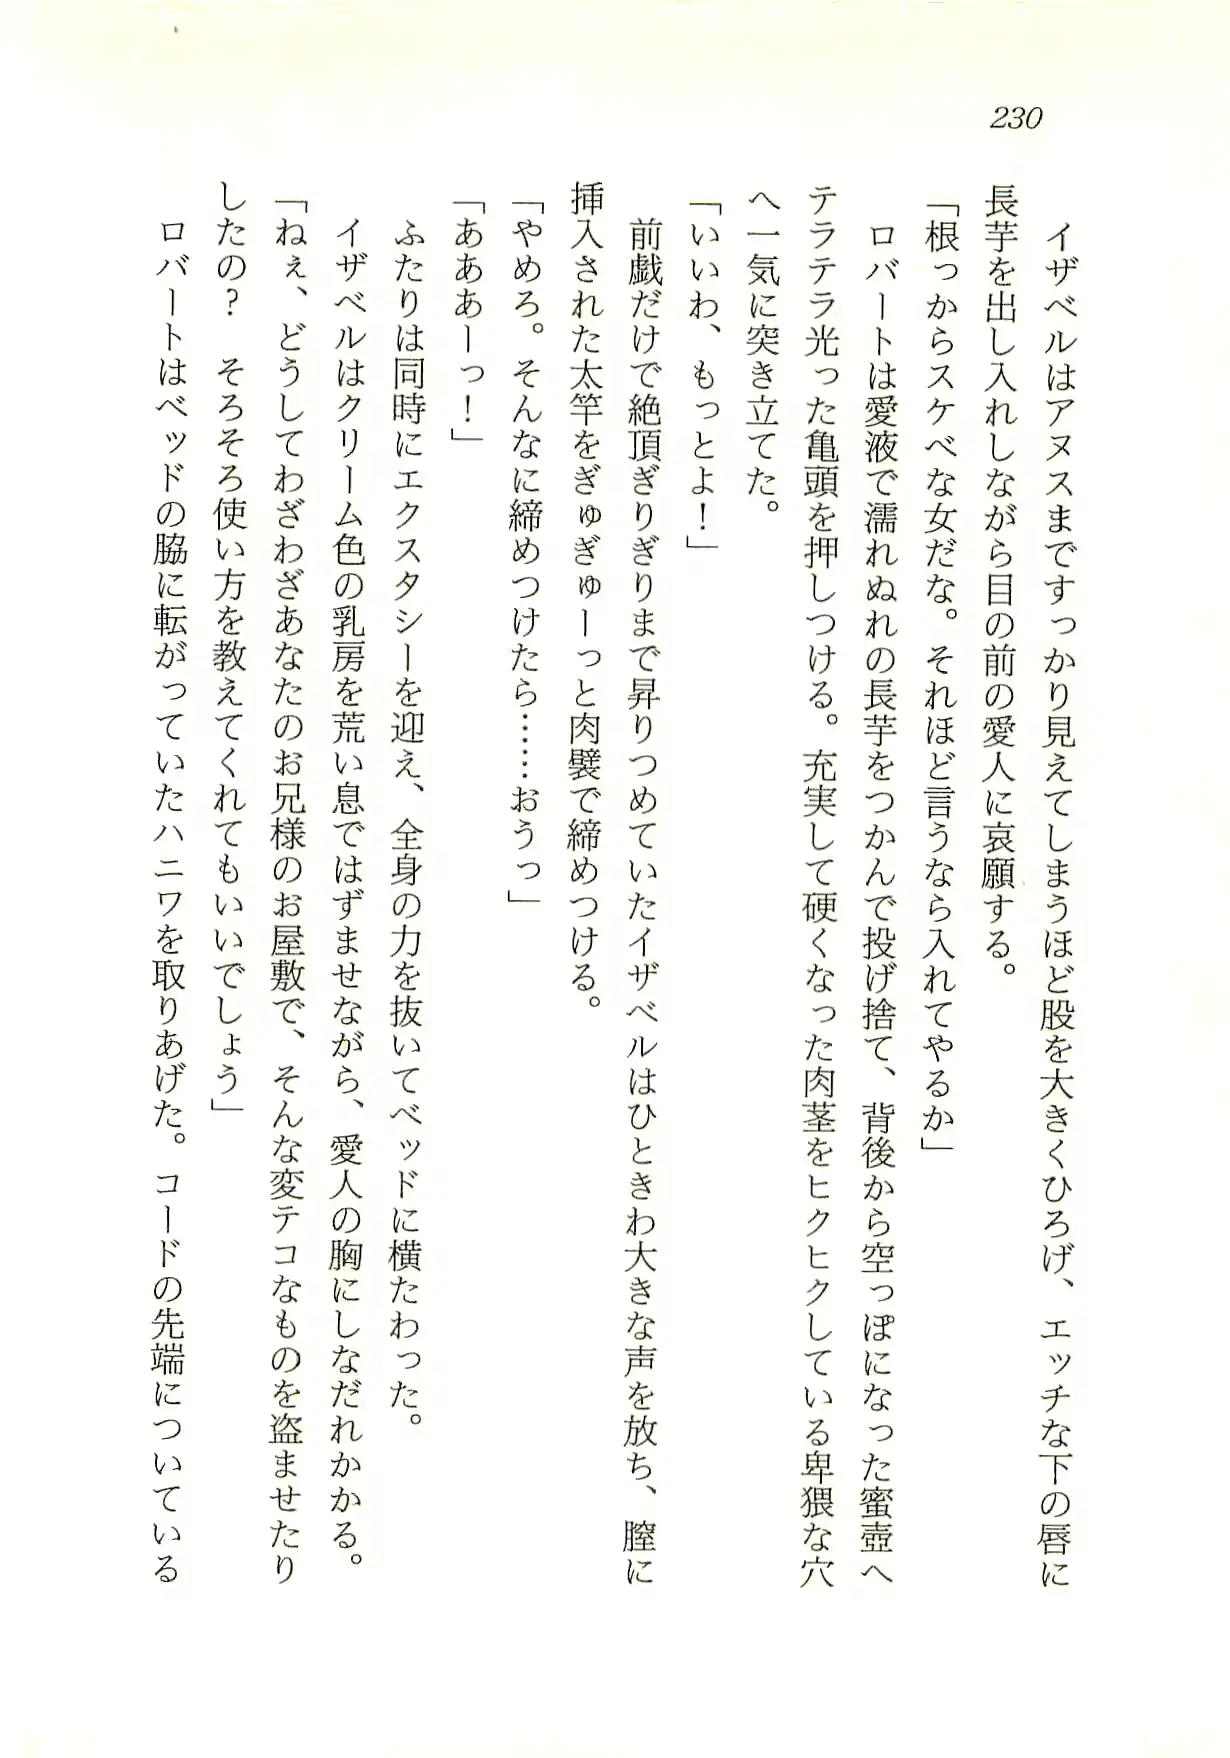 230
　イザベルはアヌスまですっかり見えてしまうほど股を大きくひろげ、エッチな下の唇に
長芋を出し入れしながら目の前の愛人に哀願する。
「根っからスケベな女だな。それほど言うなら入れてやるか」
　ロバートは愛液で濡れぬれの長芋をつかんで投げ捨て、背後から空っぽになった蜜壺へ
テラテラ光った亀頭を押しつける。充実して硬くなった肉茎をヒクヒクしている卑猥な穴
へ一気に突き立てた。
「いいわ、もっとよ！」
　前戯だけで絶頂ぎりぎりまで昇りつめていたイザベルはひときわ大きな声を放ち、膣に
挿入された太竿をぎゅぎゅーっと肉襞で締めつける。
「やめろ。そんなに締めつけたら……おうっ」
「あああーっ！」
　ふたりは同時にエクスタシーを迎え、全身の力を抜いてベッドに横たわった。
　イザベルはクリーム色の乳房を荒い息ではずませながら、愛人の胸にしなだれかかる。
「ねぇ、どうしてわざわざあなたのお兄様のお屋敷で、そんな変テコなものを盗ませたり
したの？　そろそろ使い方を教えてくれてもいいでしょう」
　ロバートはベッドの脇に転がっていたハニワを取りあげた。コードの先端についている